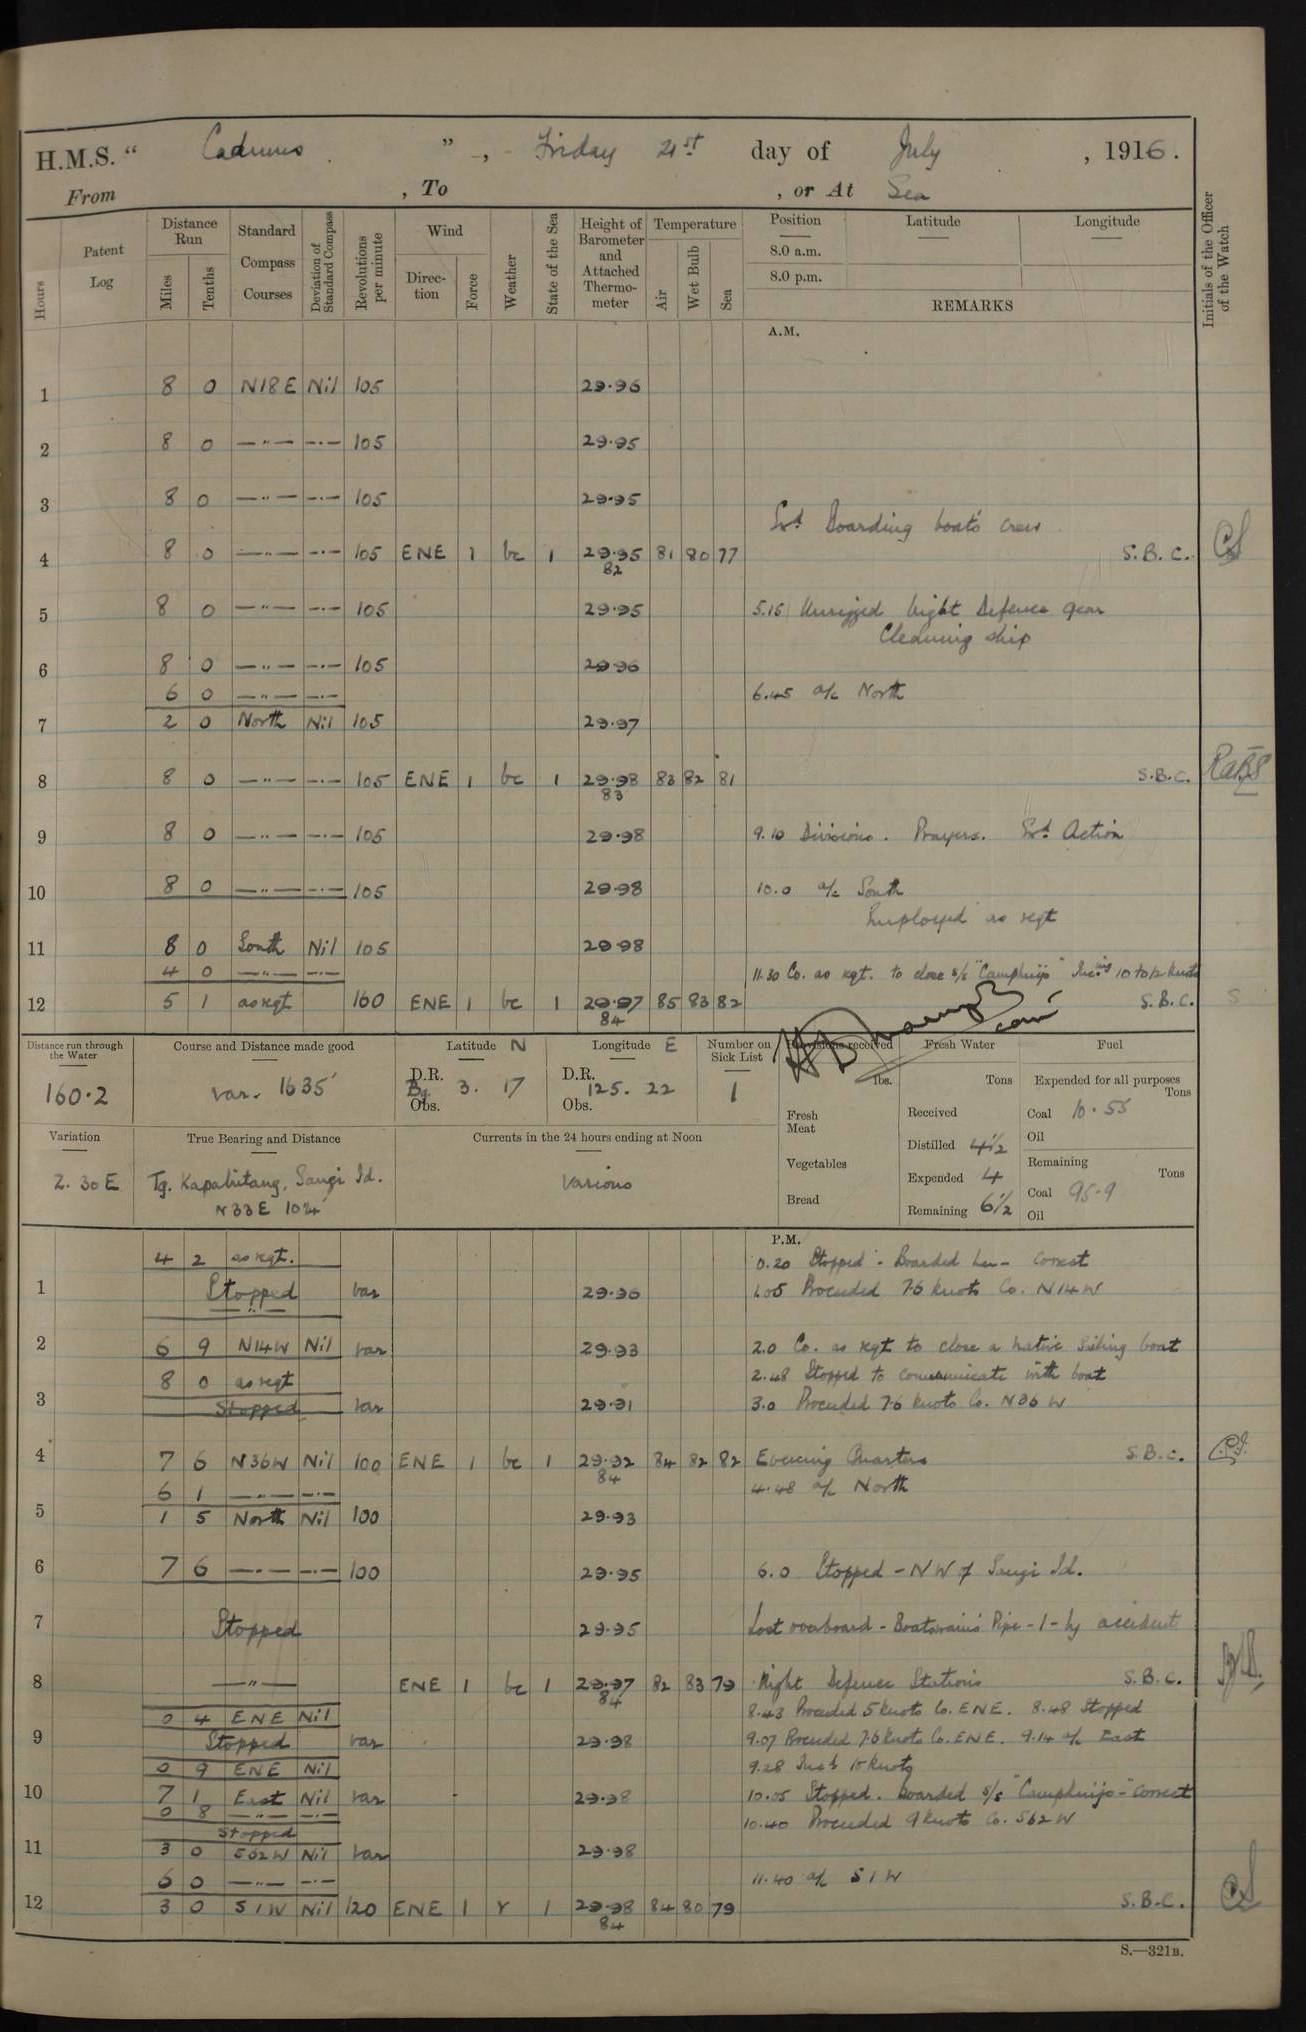 H.M.S. “ Cadmus ” , Friday 21st day of July , 1916.
From , To , or At Sea
Hours
Patent Log
Distance Run
Miles
Tenths
Standard Compass Courses
Deviation of Standard Compass
Revolutions per minute
Wind
Direction
Force
Weather
State of the Sea
Height of Barometer and Attached Thermometer
Temperature
Air
Wet Bulb
Sea
Position
Latitude
Longitude
8.0 a.m.
8.0 p.m.
REMARKS
Initials of the Officer of the Watch
A.M.
1 8 0 N18E Nil 105 29.96
2 8 0 —"— —"— 105 29.95
3 8 0 —"— —"— 105 29.95
Exd Boarding boat's crew
4 8 0 —"— —"— 105 ENE 1 bc 1 29.95 81 80 77 S.B.C.
82
5 8 0 —"— —"— 105 29.95 5.15 Unrigged Night Defence gear
Cleaning ship
6 8 0 —"— —"— 105 29.96
6 0 —"— —"— 6.45 a/c North
7 2 0 North Nil 105 29.97
8 8 0 —"— —"— 105 ENE 1 bc 1 29.98 83 82 81 S.B.C.
83
9 8 0 —"— —"— 105 29.98 9.10 Divisions. Prayers. Exd Action
10 8 0 —"— —"— 105 29.98 10.0 a/c South
Employed as reqt
11 8 0 South Nil 105 29.98
4 0 —"— —"— 11.30 Co. as reqt. to close s/s "Camphuijs" Incing 10 to 12 knots
12 5 1 as reqt 160 ENE 1 bc 1 29.97 85 83 82 S.B.C.
84
Distance run through the Water
160.2
Course and Distance made good
var. 1635'
Latitude N
D.R.
Bg. 3. 17
Obs.
Longitude E
D.R.
125. 22
Obs.
Number on Sick List
1
Provisions received
lbs.
Fresh Meat
Vegetables
Bread
Fresh Water
Tons
Received
Distilled 4½
Expended 4
Remaining 6½
Fuel
Expended for all purposes
Tons
Coal 10.55
Oil
Remaining
Tons
Coal 95.9
Oil
Variation
2. 30 E
True Bearing and Distance
Tg. Kapahitang, Sangi Id.
N33E
Currents in the 24 hours ending at Noon
Various
P.M.
4 2 as reqt. 0.20 Stopped - Boarded her - correct
1 Stopped var 29.96 1.05 Proceeded 7.6 knots Co. N14W
—"—
2 6 9 N14W Nil var 29.93 2.0 Co. as reqt to close a native sailing boat
8 0 as reqt 2.48 Stopped to communicate with boat
3 Stopped var 29.91 3.0 Proceeded 7.6 knots Co. N36W
4 7 6 N36W Nil 100 ENE 1 bc 1 29.92 84 82 82 Evening Quarters S.B.C.
84
6 1 —"— —"— 4.48 a/c North
5 1 5 North Nil 100 29.93
6 7 6 —"— —"— 100 29.95 6.0 Stopped - NW of Sangi Id.
7 Stopped 29.95 Lost overboard - Boatswain's Pipe - 1 - by accident
8 —"— ENE 1 bc 1 29.97 82 83 79 Night Defence Stations S.B.C.
84
0 4 ENE Nil 8.43 Proceeded 5 knots Co. ENE. 8.48 Stopped
9 Stopped var 29.98 9.07 Proceeded 7.6 knots Co. ENE. 9.14 a/c East
0 9 ENE Nil 9.28 Incd 10 knots
10 7 1 East Nil var 29.98 10.05 Stopped. Boarded s/s "Camphuijs" - correct
0 8 —"— —"— 10.40 Proceeded 9 knots Co. S62W
Stopped
11 3 0 S62W Nil var 29.98
6 0 —"— —"— 11.40 a/c S1W
12 3 0 S1W Nil 120 ENE 1 r 1 29.98 84 80 79 S.B.C.
84
S.—321B.